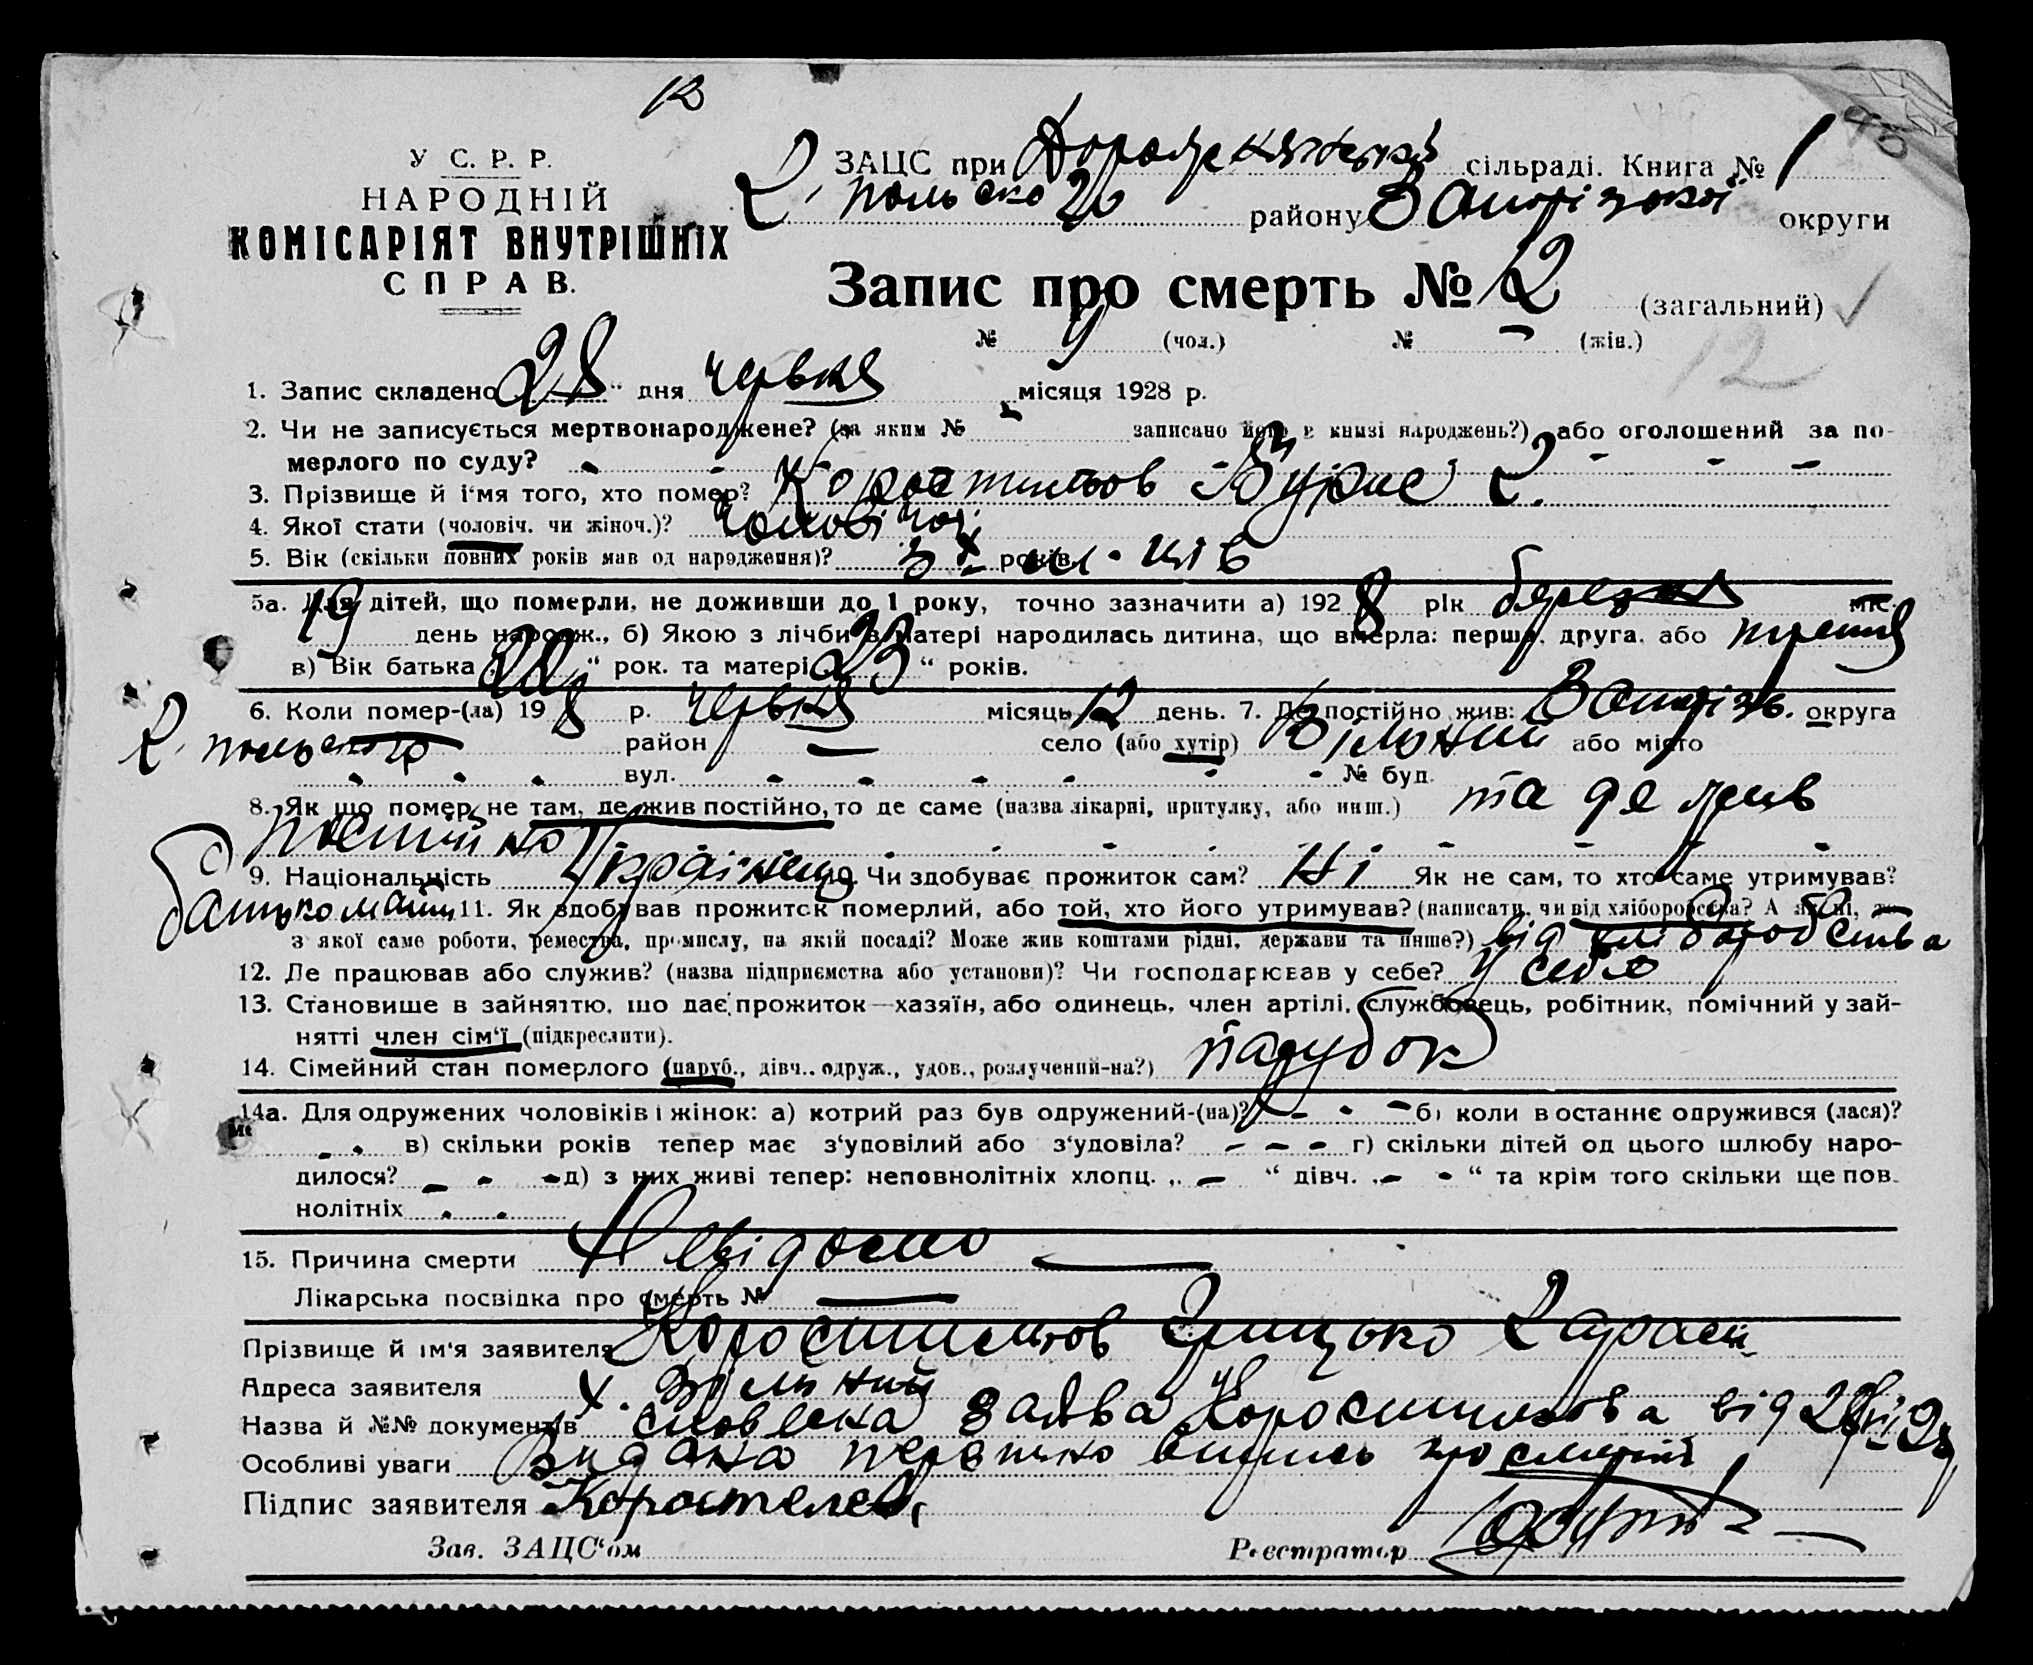 12
У С. Р. Р.
НАРОДНІЙ
КОМІСАРІЯТ ВНУТРІШНІХ
СПРАВ.
ЗАЦС при сільраді. Книга № 1
район у Запорізької округи
Запис про смерть № 12 (загальний)
№ 9 (чол.) № - (жін.)
12
1. Запис складено 28 " дня червня місяця 1928 р.
2. Чи не записується мертвонароджене? (за яким № - записано його в книзі народжень?) або оголошений за по-
мерлого по суду? - - - - -
3. Прізвище й ім'я того, хто помер? Коростильов
4. Якої стати (чоловіч. чи жіноч.)? чоловічої
5. Вік (скільки повних років мав од народження)? 3х років м-ців
5а. Для дітей, що померли, не доживши до 1 року, точно зазначити а) 1928 рік березня міс.
19 день народж., б) Якою з лічби в матері народилась дитина, що вмерла: перша, друга, або третя
в) Вік батька „22" рок. та матері „23" років.
6. Коли помер-(ла) 19 8 р. червня місяць 12 день. 7. Де постійно жив: Запорізь. округа
район — село (або хутір) Вільний або місто
- - - вул. - - - - - № буд.
8. Як що помер не там, де жив постійно, то де саме (назва лікарні, притулку, або инш.) та де жив
постійно - - - - - -
9. Національність Українець Чи здобуває прожиток сам? Ні Як не сам, то хто саме утримував?
батько мати 11. Як здобував прожиток померлий, або той, хто його утримував? (написати, чи від хліборобства? А як ні, то
з якої саме роботи, ремества, промислу, на якій посаді? Може жив коштами рідні, держави та инше?) від хліборобства
12. Де працював або служив? (назва підприємства або установи)? Чи господарював у себе? у себе
13. Становище в зайняттю, що дає прожиток—хазяїн, або одинець, член артілі, службовець, робітник, помічний у зай-
нятті член сім'ї (підкреслити).
14. Сімейний стан померлого (паруб., дівч., одруж., удов., розлучений-на?) парубок
14а. Для одружених чоловіків і жінок: а) котрий раз був одружений-(на)? - - - б) коли в останнє одружився (лася)?
- - в) скільки років тепер має з'удовілий або з'удовіла? - - - г) скільки дітей од цього шлюбу наро-
дилося? - - - д) з них живі тепер: неповнолітніх хлопц. „ - " дівч. „ - - " та крім того скільки ще пов-
нолітніх - -
15. Причина смерти Невідомо —
Лікарська посвідка про смерть № —
Прізвище й ім'я заявителя Коростильов Грицько
Адреса заявителя х. Вільний
Назва й №№ документів словесна заява Коростильова від
Особливі уваги Видана первітно випись про смерть
Підпис заявителя Коростелев
Зав. ЗАЦС'ом Реєстратор